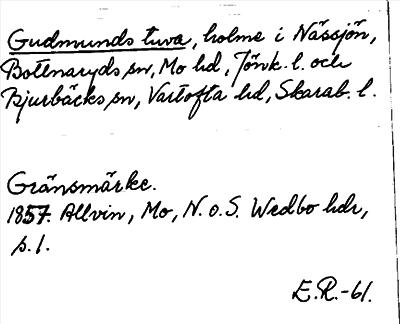 Gudmunds tuva, holme i Nässjön,
Bottnaryds sn, Mo hd, Jönk. l. och
Bjurbäcks sn, Vartofta hd, Skarab. l.
Gränsmärke.
1857. Allvin, Mo, N. o. S. Wedbo hdr,
s. 1.
E.R.-61.